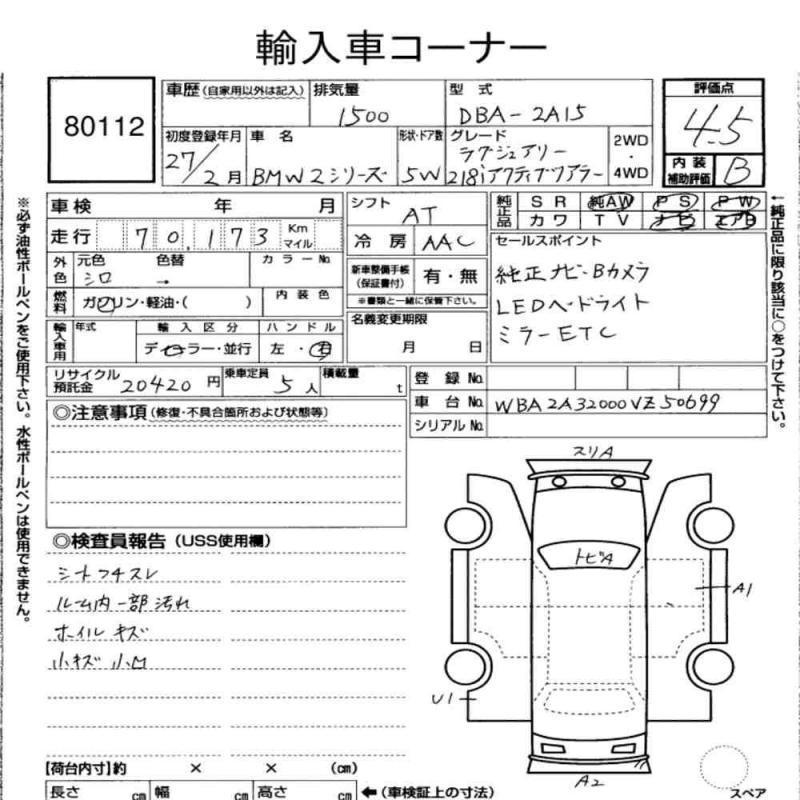 輸入車コーナー
80112
車歴 (自家用以外は記入) 排気量 型式 評価点
1500 DBA-2A15 4.5
初度登録年月 車名 形状・ドア数 グレード 2WD・4WD 内装補助評価 B
27/2月 BMW2シリーズ 5W ラグジュアリー
218iアクティブツアラー
車検 年 月 シフト AT 純正品 SR 純AW PS PW
カワ TV ナビ エアB
走行 70,173 Km マイル 冷房 AAC セールスポイント
外色 元色 色替 カラーNo. 新車整備手帳(保証書付) 有・無 純正ナビ・Bカメラ
シロ → ※書類と一緒に保管下さい。 LEDヘッドライト
燃料 ガソリン・軽油・( ) 内装色 名義変更期限 ミラーETC
輸入車用 年式 輸入区分 ハンドル 月 日
ディーラー・並行 左・右
リサイクル預託金 20420円 乗車定員 5人 積載量 t 登録No.
車台No. WBA2A32000VZ50699
シリアルNo.
◎注意事項 (修復・不具合箇所および状態等)
◎検査員報告 (USS使用欄)
シートフチスレ
ルーム内一部汚れ
ホイルキズ
小キズ 小凹
スリA
トビA
A1
U1
A2
スペア
【荷台内寸】約 × × (cm)
長さ cm 幅 cm 高さ cm ←(車検証上の寸法)
※必ず油性ボールペンをご使用下さい。水性ボールペンは使用できません。
←純正品に限り該当に○をつけて下さい。